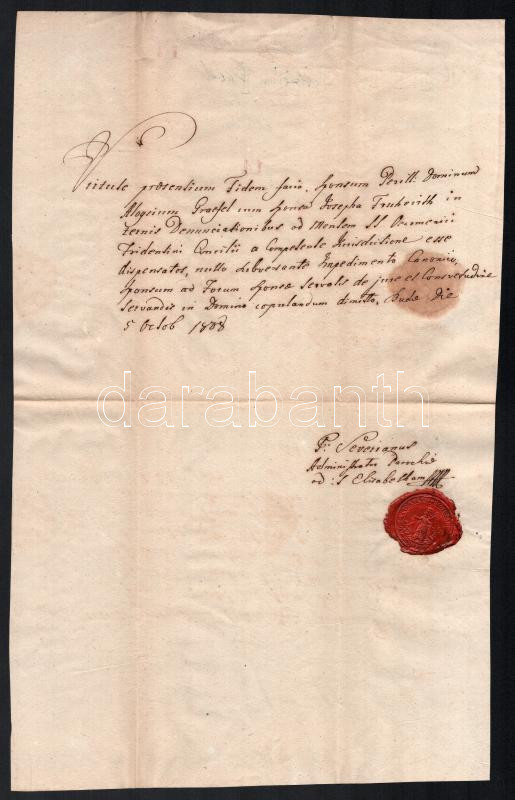 Virtute præsentium Fidem facio, Sponsum Perill. Dominum
Aloysium Graefel cum Sponsa Josepha Fruhwirth in
ternis Denunciationibus ad Mentem SS Œcumenici
Tridentini Concilii a Competente Jurisdictione esse
dispensatos, nullo obversante Impedimento Canonico,
Sponsum ad Forum Sponsæ servatis de jure et Consvetudine
servandis in Domino copulandum dimitto, Budæ Die
5 Octob 1808
darabanth
P: Severianus
Administrator Parochiæ
ad: S Elisabetham